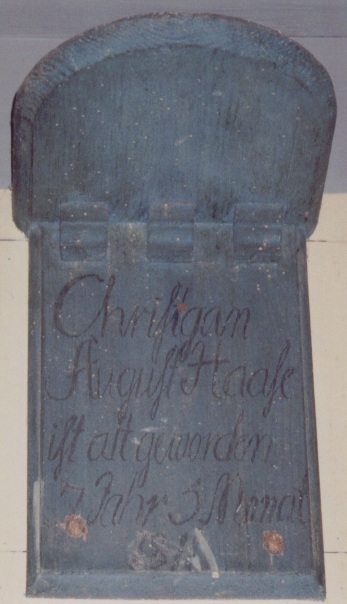 Christjan
August Haase
ist alt geworden
7 Jahr 3 Monat